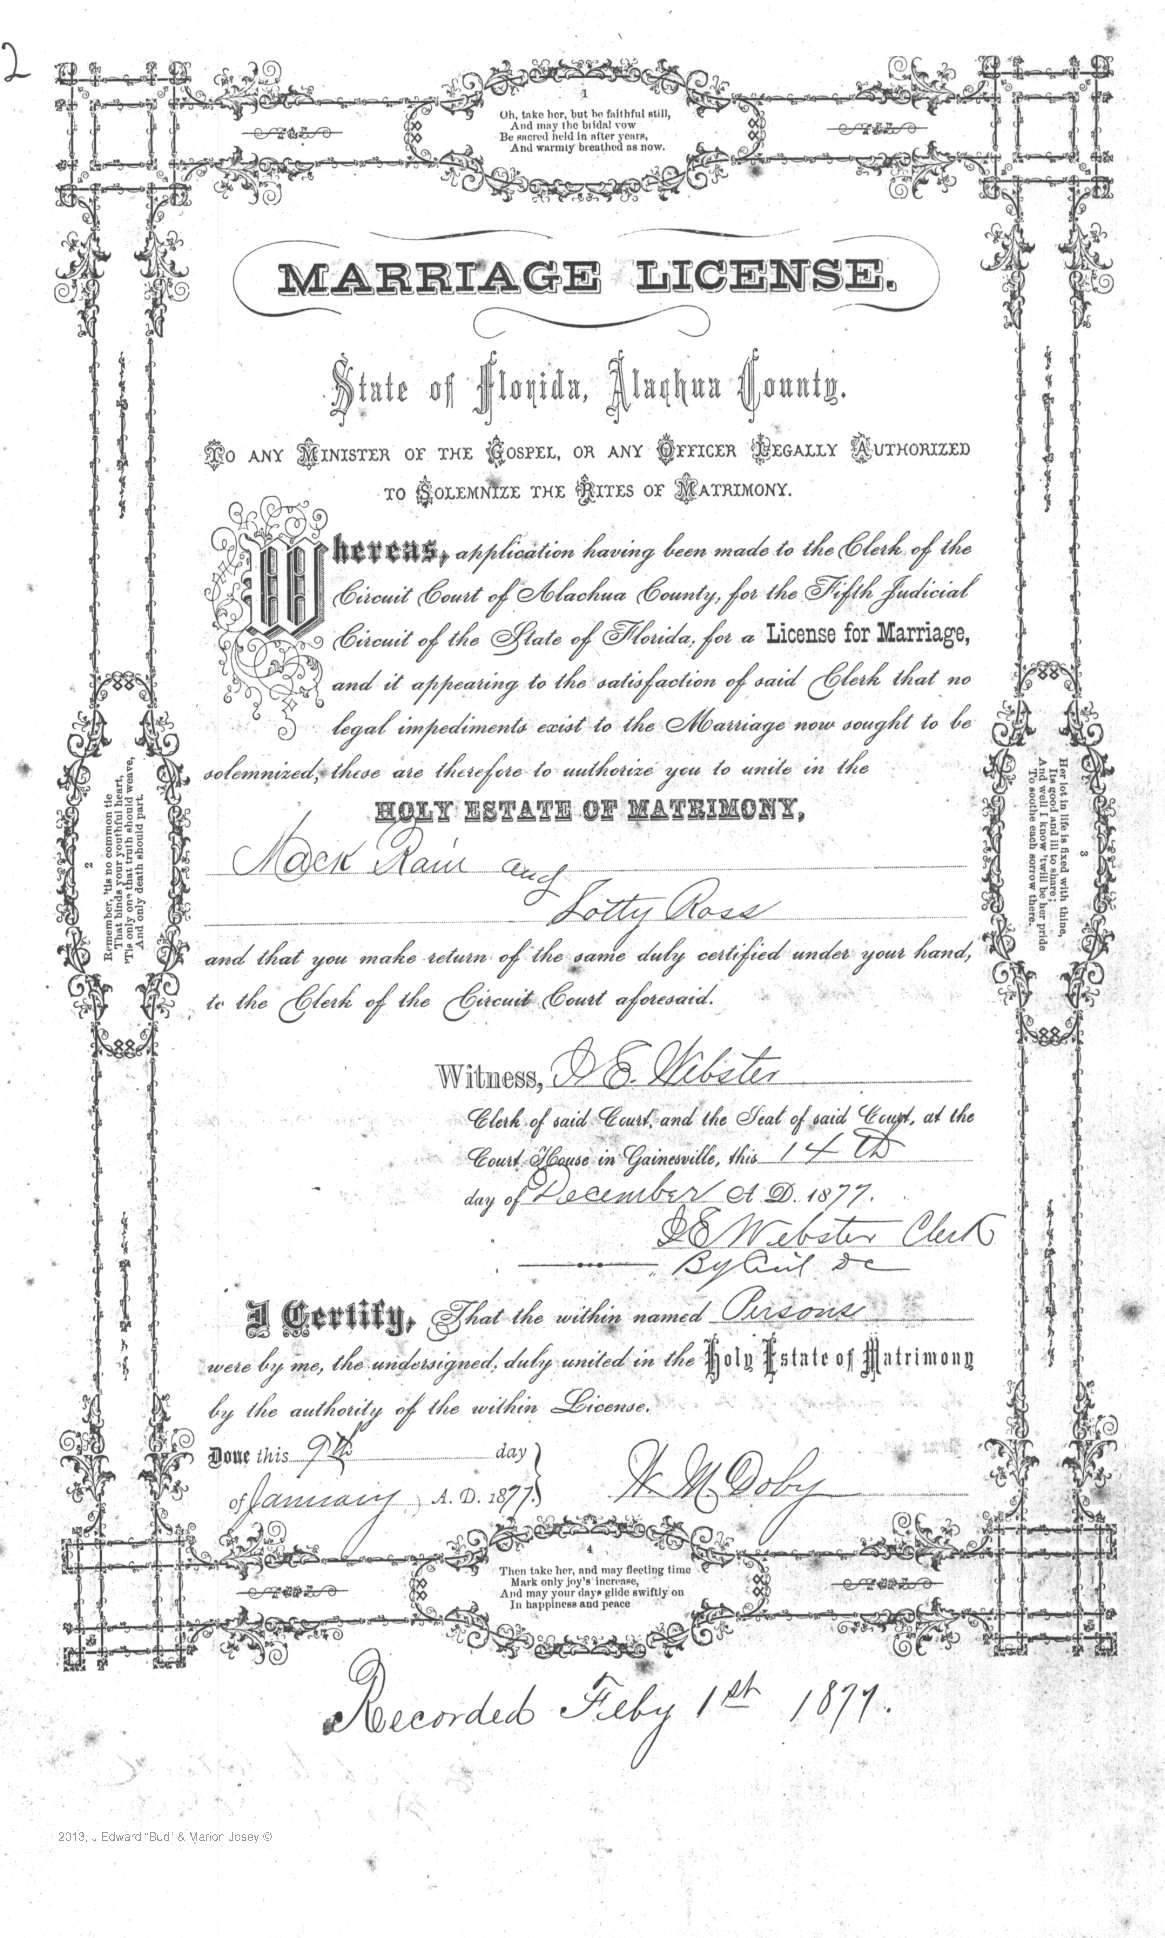 2
1
Oh, take her, but be faithful still,
And may the bridal vow
Be sacred held in after years,
And warmly breathed as now.
MARRIAGE LICENSE.
State of Florida, Alachua County.
TO ANY MINISTER OF THE GOSPEL, OR ANY OFFICER LEGALLY AUTHORIZED
TO SOLEMNIZE THE RITES OF MATRIMONY.
Whereas, application having been made to the Clerk of the
Circuit Court of Alachua County, for the Fifth Judicial
Circuit of the State of Florida, for a License for Marriage,
and it appearing to the satisfaction of said Clerk that no
legal impediments exist to the Marriage now sought to be
solemnized, these are therefore to authorize you to unite in the
HOLY ESTATE OF MATRIMONY,
Mack Rain and
Lotty Ross
and that you make return of the same duly certified under your hand,
to the Clerk of the Circuit Court aforesaid.
2
Remember, 'tis no common tie
That binds your youthful heart,
'Tis only one that truth should weave,
And only death should part.
3
Her lot in life is fixed with thine,
Its good and ill to share;
And well I know 'twill be her pride
To soothe each sorrow there.
Witness, E. Webster
Clerk of said Court, and the Seal of said Court, at the
Court House in Gainesville, this 14th
day of December A. D. 1877.
E Webster Clerk
By DC
I Certify, That the within named Persons
were by me, the undersigned, duly united in the Holy Estate of Matrimony
by the authority of the within License.
Done this 9th day
of January, A. D. 1877.
M Doby
4
Then take her, and may fleeting time
Mark only joy's increase,
And may your days glide swiftly on
In happiness and peace
Recorded Feby 1st 1877.
2013, J Edward "Bud" & Marion Josey ©